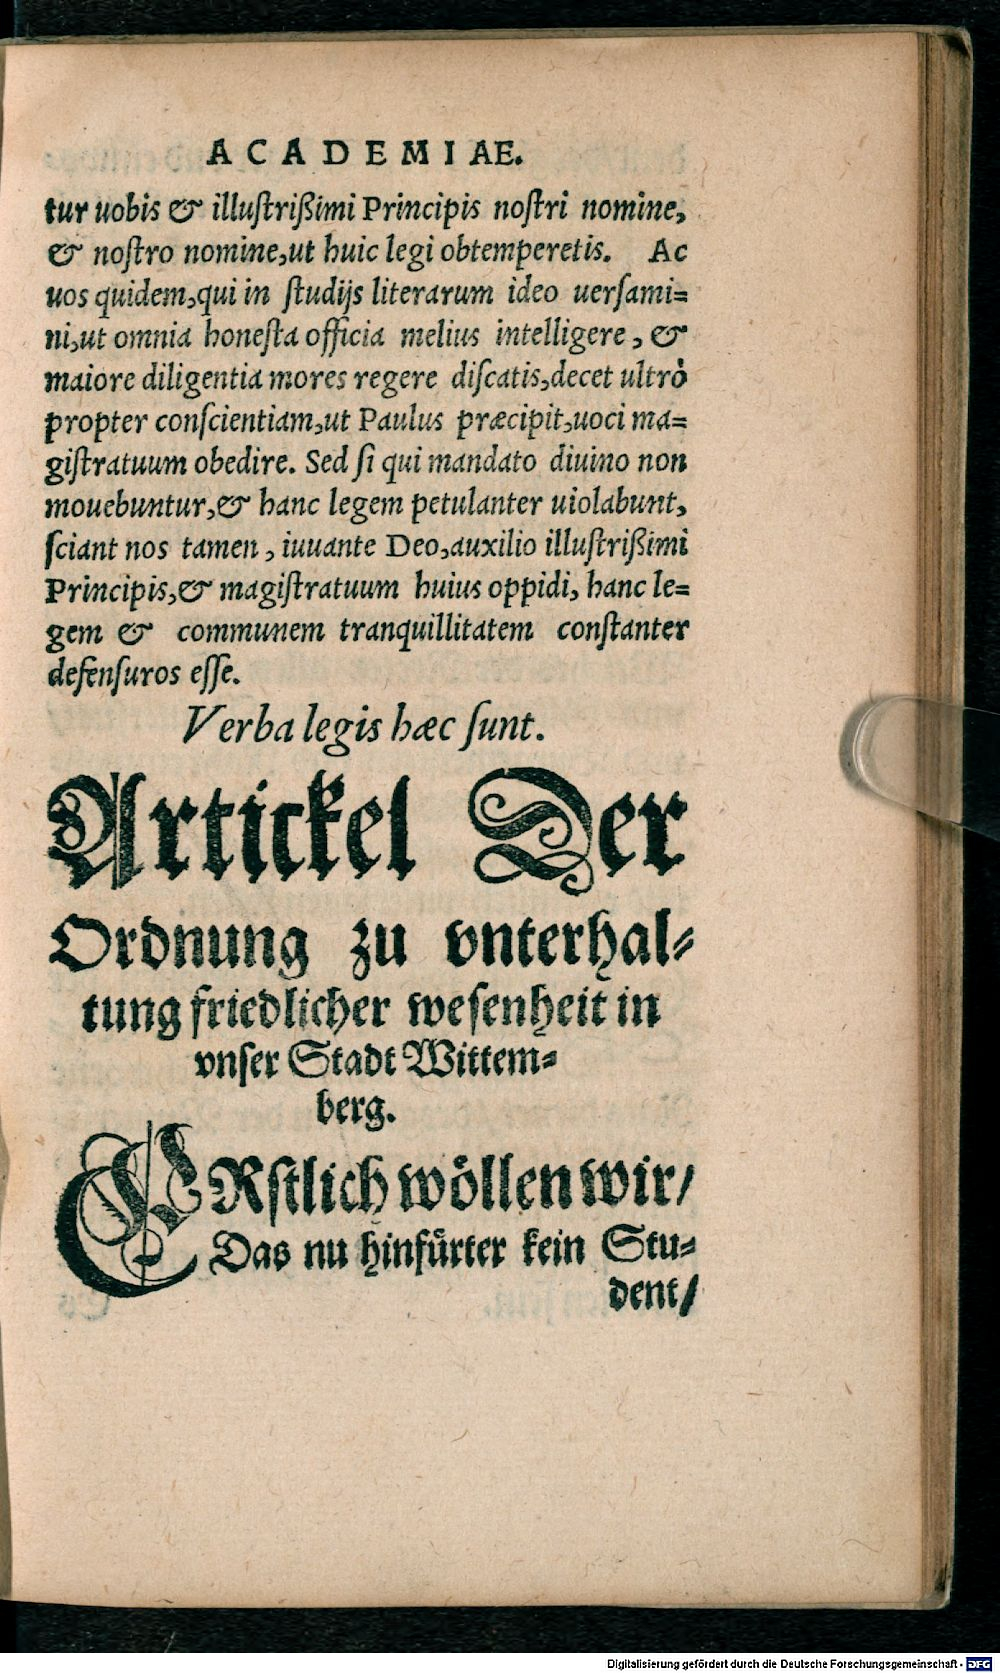 ACADEMIAE.
tur uobis & illuſtriſsimi Principis noſtri nomine,
& noſtro nomine,ut huic legi obtemperetis. Ac
uos quidem,qui in ſtudijs literarum ideo uerſami=
ni,ut omnia honeſta officia melius intelligere, &
maiore diligentia mores regere diſcatis,decet ultrò
propter conſcientiam,ut Paulus præcipit,uoci ma=
giſtratuum obedire. Sed ſi qui mandato diuino non
mouebuntur,& hanc legem petulanter uiolabunt,
ſciant nos tamen, iuuante Deo,auxilio illuſtriſsimi
Principis,& magiſtratuum huius oppidi, hanc le=
gem & communem tranquillitatem conſtanter
defenſuros eſſe.
Verba legis hæc ſunt.
Artickel Der
Ordnung zu vnterhal=
tung friedlicher weſenheit in
vnſer Stadt Wittem=
berg.
ERſtlich wöllen wir/
Das nu hinfürter kein Stu=
dent/
Digitalisierung gefördert durch die Deutsche Forschungsgemeinschaft - DFG